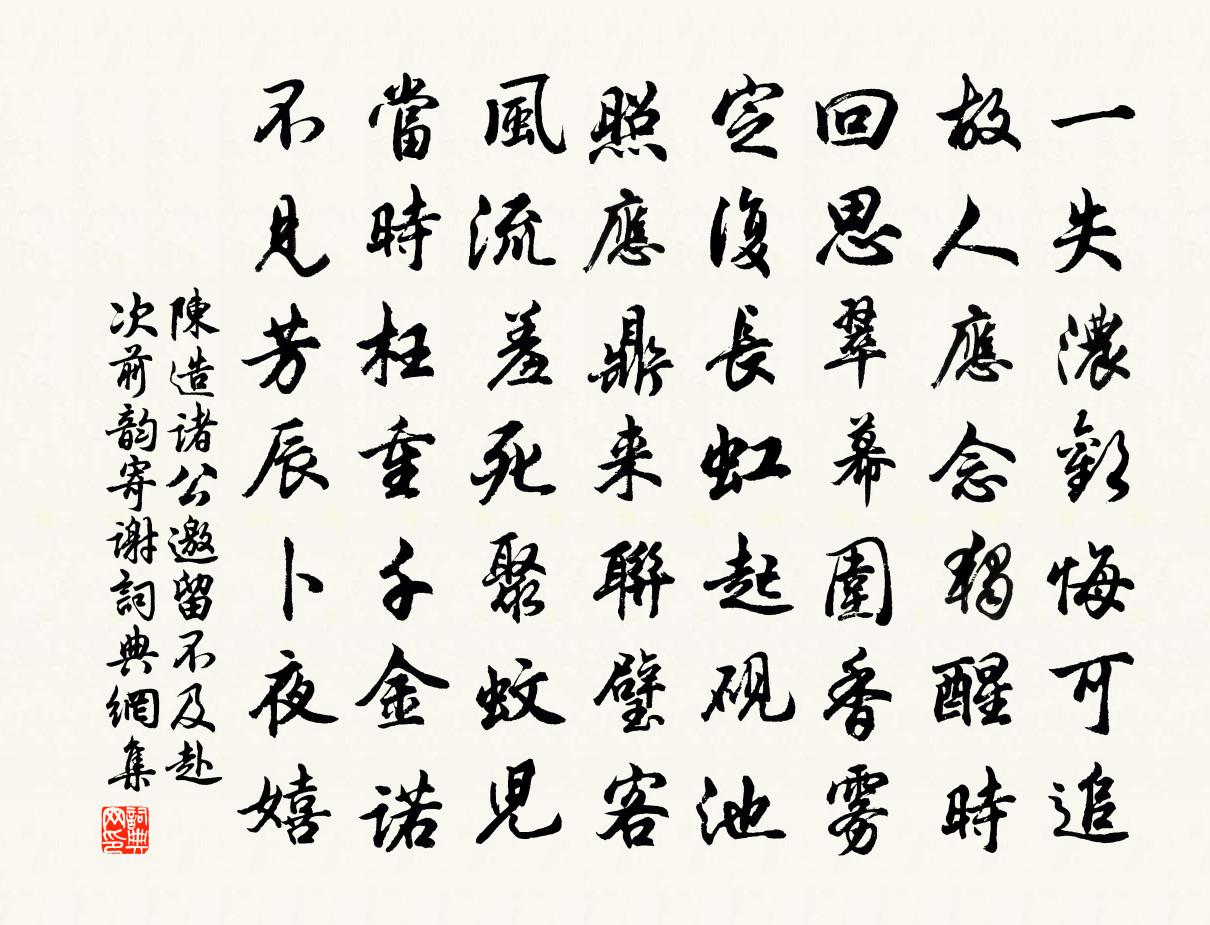 一失濃歡悔可追
故人應念獨醒時
回思翠幕圍香霧
定復長虹起硯池
照應鼎来聯璧客
風流羞死聚蚊児
當時枉重千金諾
不見芳辰卜夜嬉
陳造諸公邀留不及赴
次前韵寄謝詞典網集
詞典
网印